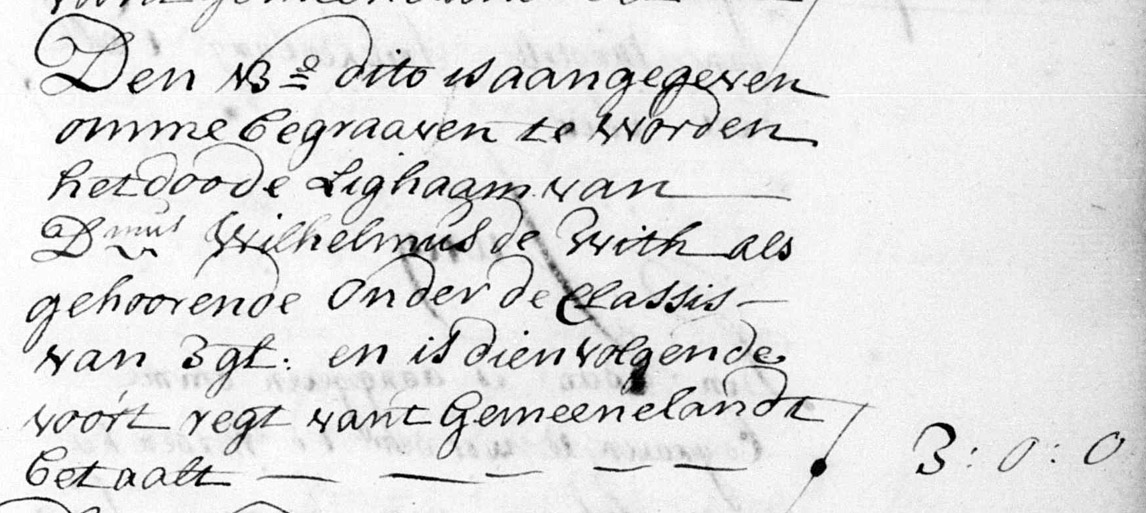 Den 13:o dito is aangegeven
omme begraaven te worden
het doode Lighaam van
Dmus Wilhelmus de With als
gehoorende onder de Classis
van 3 gl: en is dienvolgende
voort regt vant Gemeenelandt
betaalt — — — — — 3: 0: 0